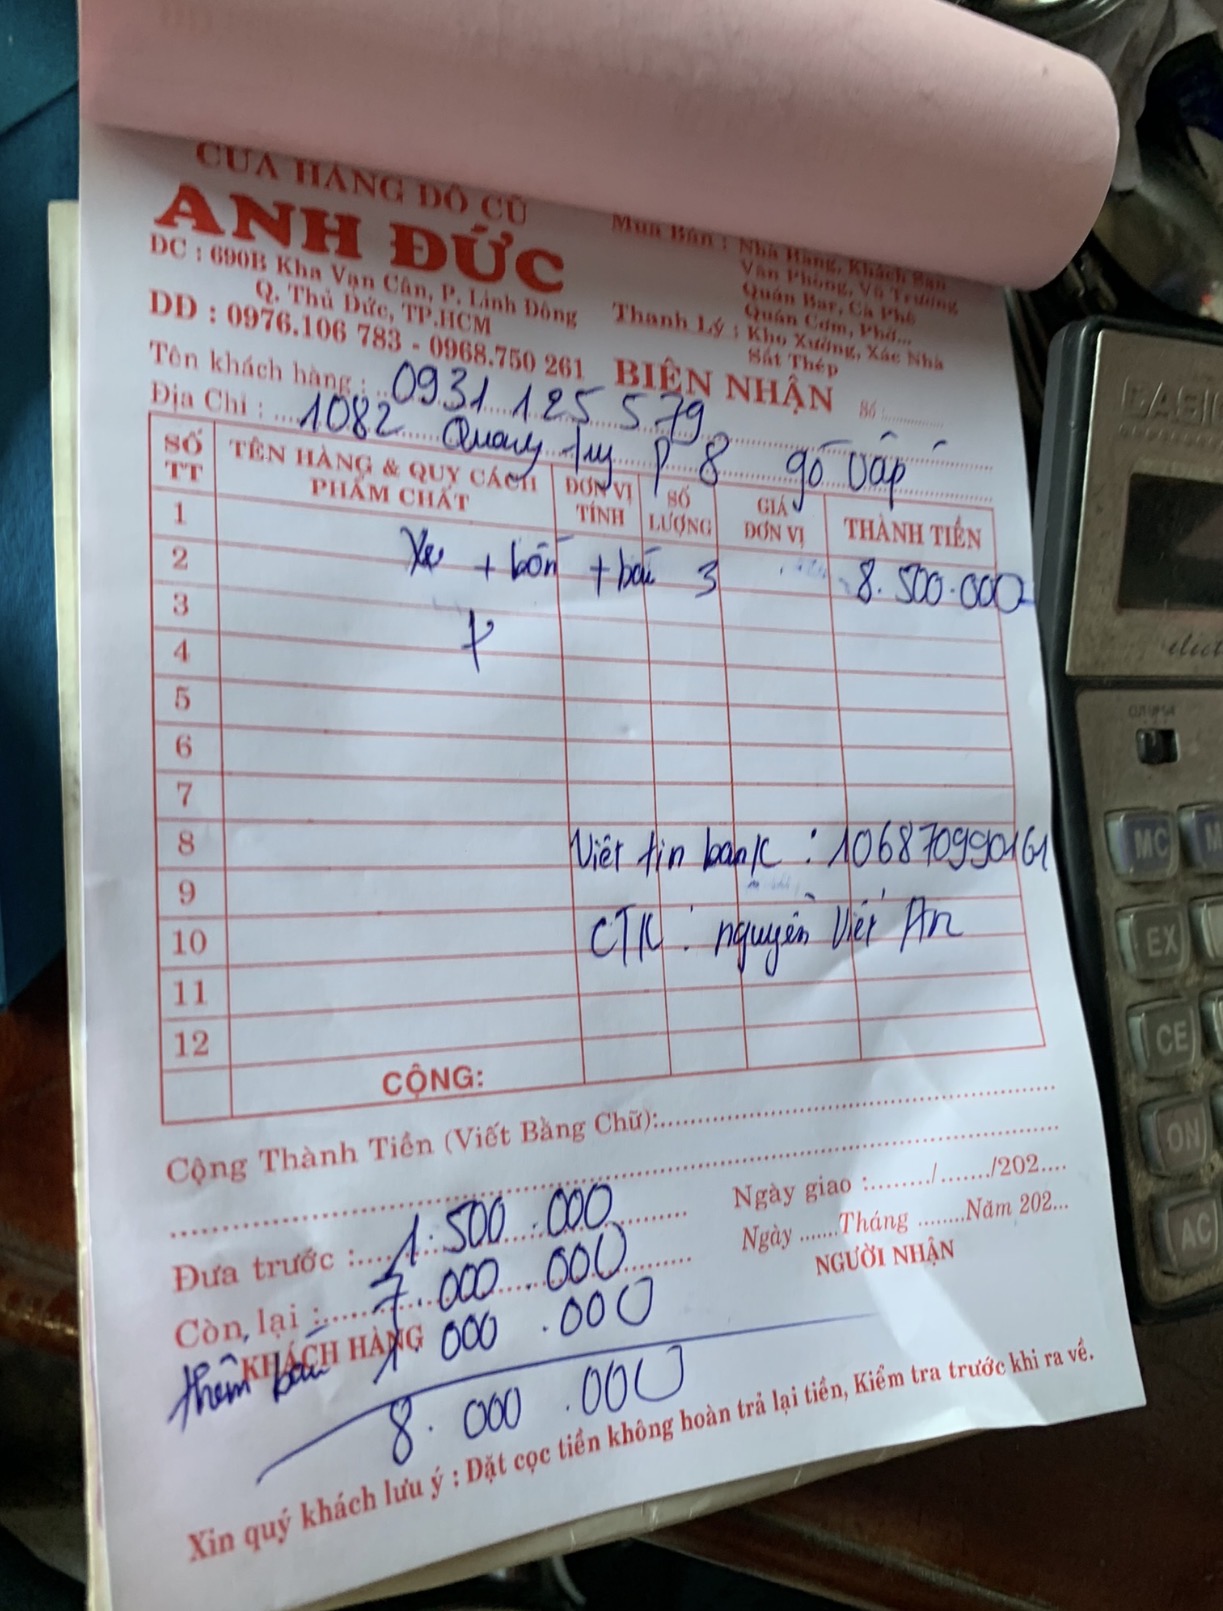 CỬA HÀNG ĐỒ CŨ
ANH ĐỨC
ĐC : 690B Kha Vạn Cân, P. Linh Đông
Q. Thủ Đức, TP.HCM
DĐ : 0976.106 783 - 0968.750 261
Mua Bán : Nhà Hàng, Khách Sạn
Văn Phòng, Vũ Trường
Quán Bar, Cà Phê
Quán Cơm, Phở...
Thanh Lý : Kho Xưởng, Xác Nhà
Sắt Thép
BIÊN NHẬN Số :
Tên khách hàng : 0931 125 579
Địa Chỉ : 1082 Quang P 8 gò vấp
SỐ TT TÊN HÀNG & QUY CÁCH PHẨM CHẤT ĐƠN VỊ TÍNH SỐ LƯỢNG GIÁ ĐƠN VỊ THÀNH TIỀN
1 Xe + bồn + 3 8.500.000
2
3
4
5
6
7
8 Viêt tin bank : 106870990161
9
10 CTK : nguyễn Viết An
11
12
CỘNG:
Cộng Thành Tiền (Viết Bằng Chữ):
Đưa trước : 1.500.000
Ngày giao :......../......../202....
Còn lại : 7.000.000
Ngày .......Tháng ........Năm 202...
KHÁCH HÀNG
NGƯỜI NHẬN
thêm 1 000.000
8.000.000
Xin quý khách lưu ý : Đặt cọc tiền không hoàn trả lại tiền, Kiểm tra trước khi ra về.
CASIO
elect
MC
EX
CE
ON
AC